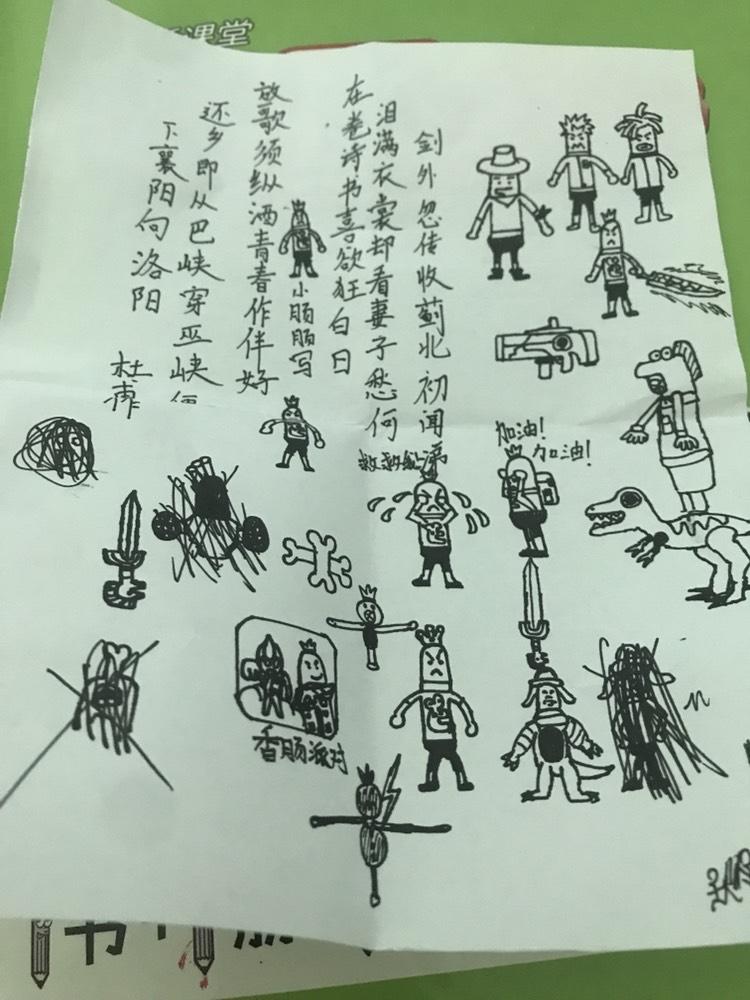 课堂
剑外忽传收蓟北初闻涕
泪满衣裳却看妻子愁何
在卷诗书喜欲狂白日
小肠肠写
放歌须纵酒青春作伴好
还乡即从巴峡穿巫峡
下襄阳向洛阳
杜
加油!
加油!
香肠派对